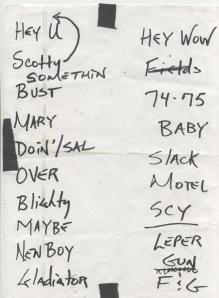 Hey U
Scotty
SOMETHIN
BUST
MARY
DOIN'/SAL
OVER
Blighty
MAYBE
NEN BOY
Gladiator
HEY WOW
Fields
74-75
BABY
SLACK
MOTEL
SCY
LEPER
GUN
F+G